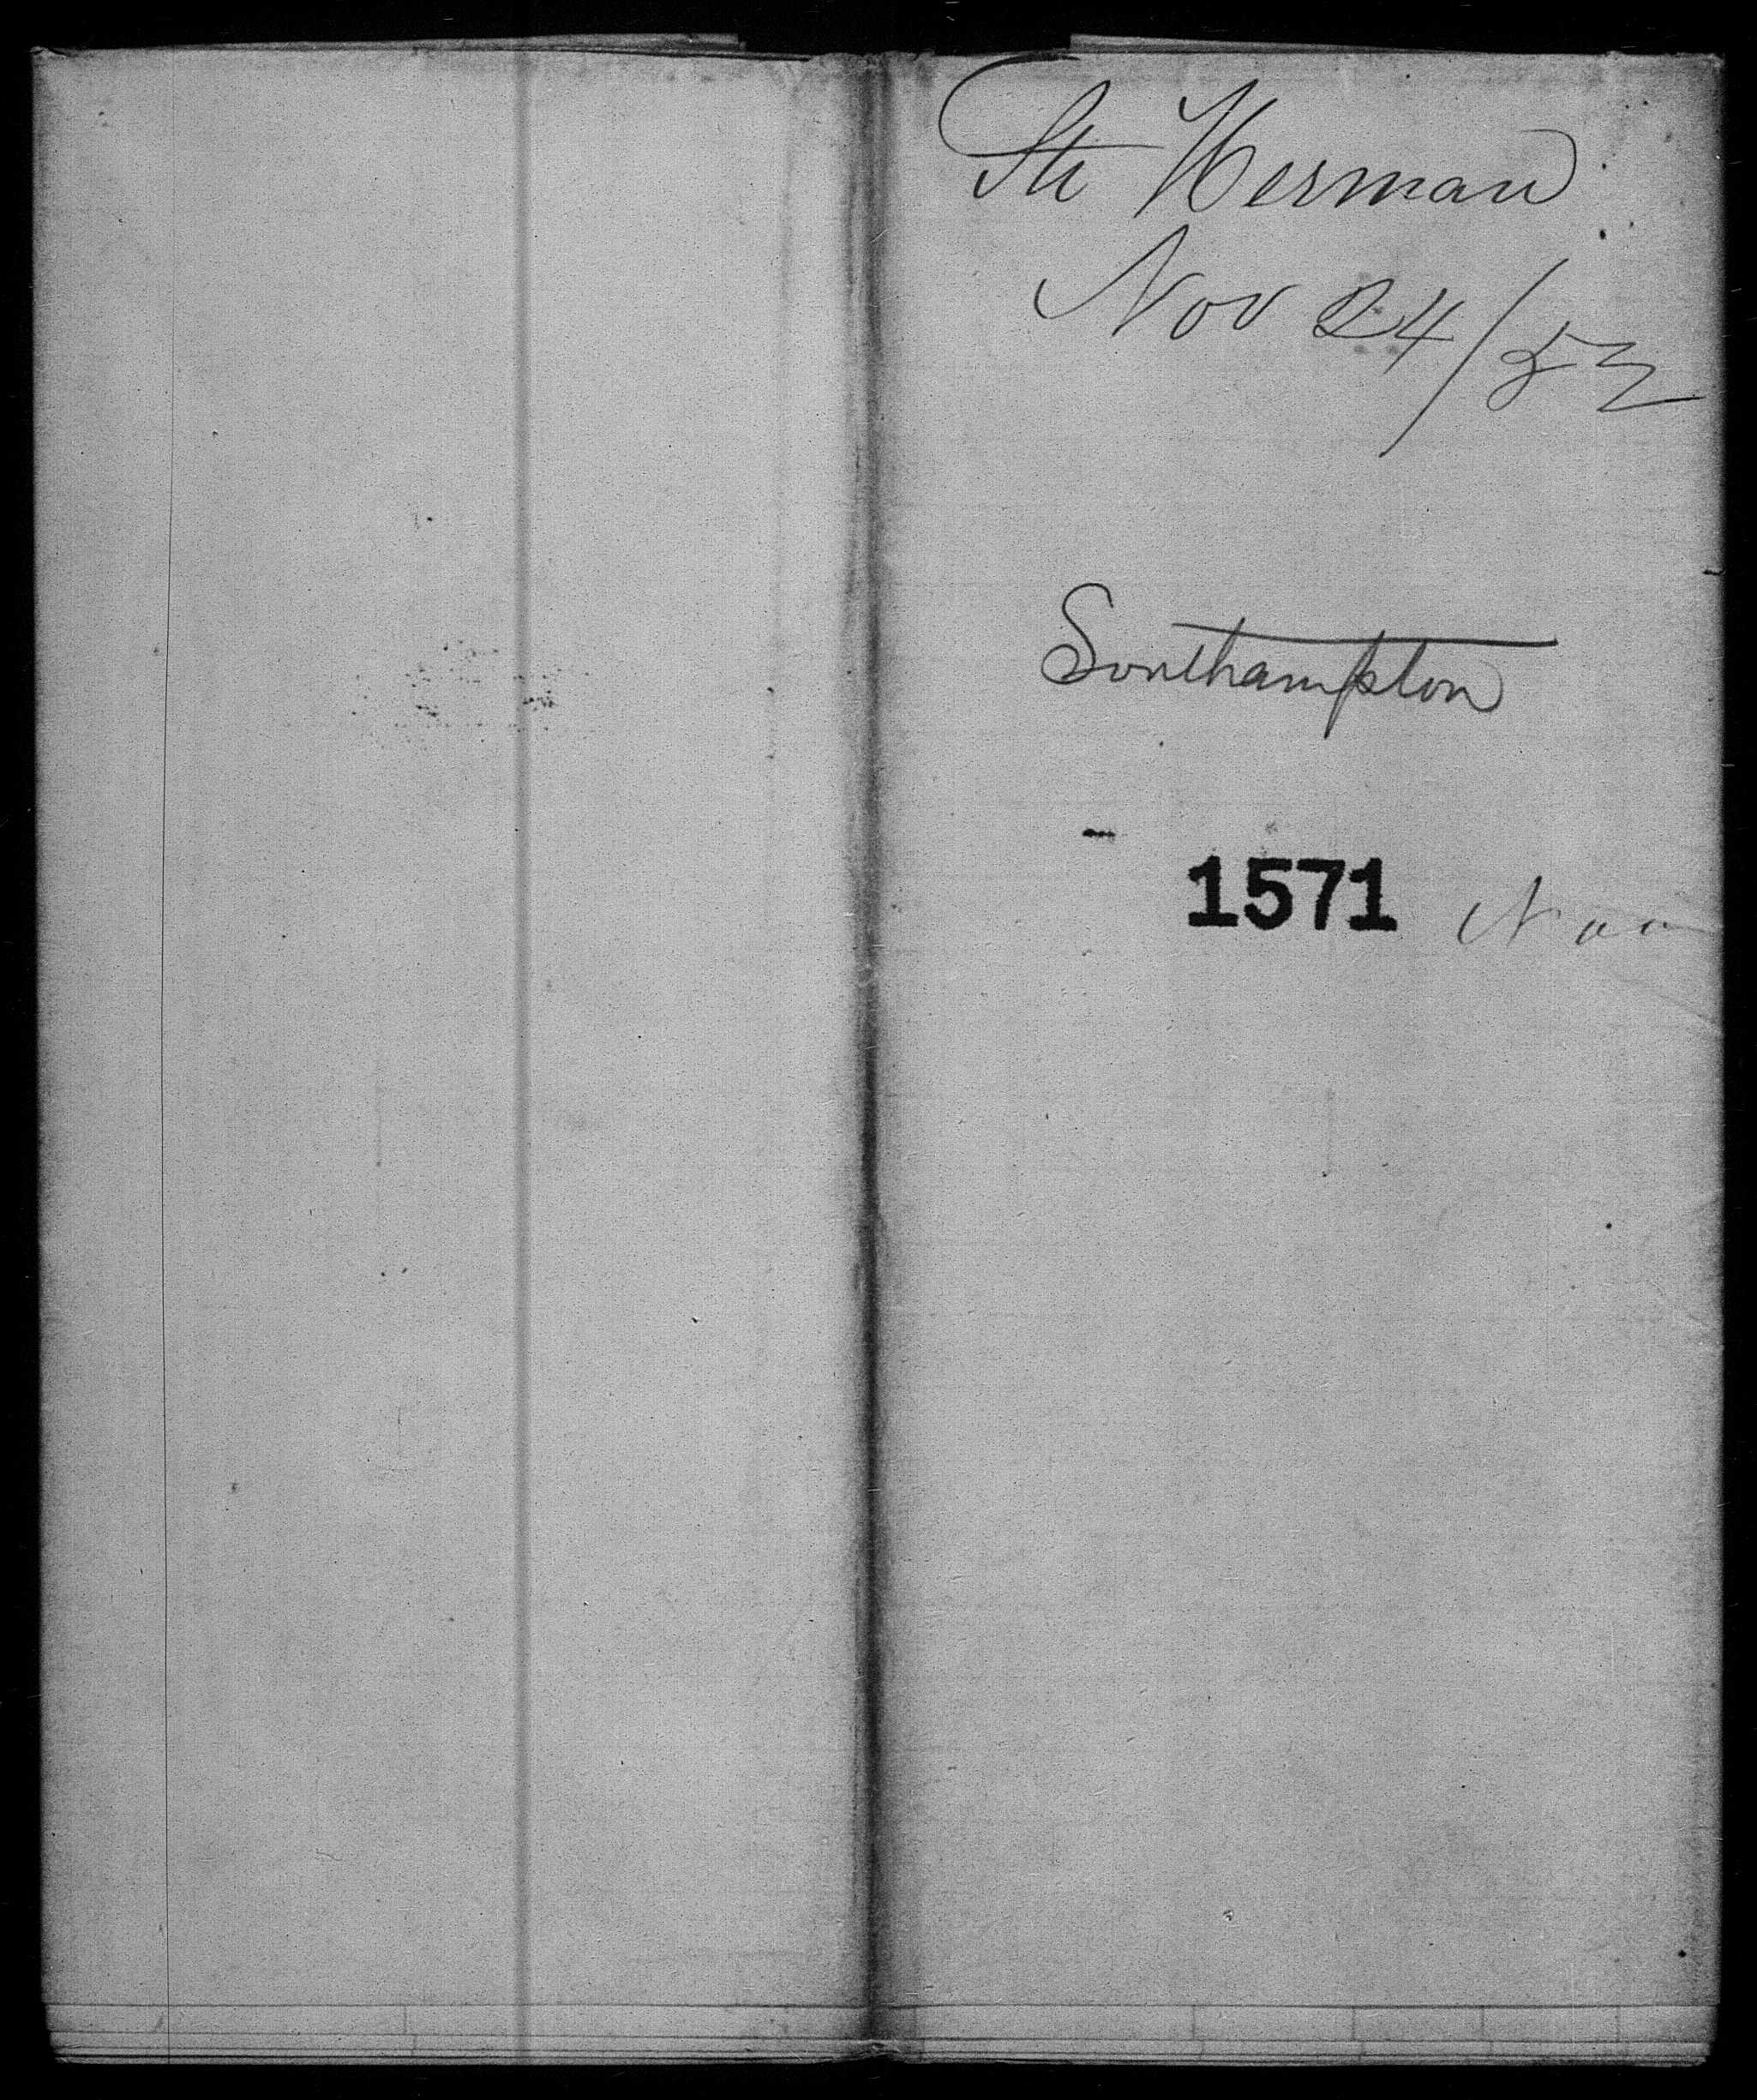 Str Herman
Nov 24/53
Southampton
1571